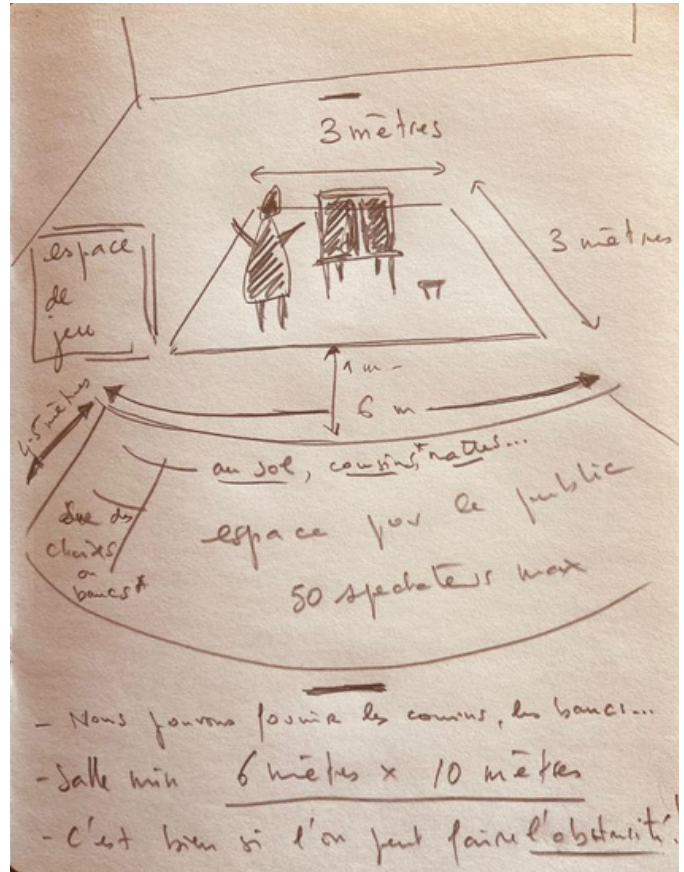 3 mètres
3 mètres
espace
de
jeu
1 m -
6 m
4-5 mètres
au sol, cousins* nattes...
sur des
chaises
ou
bancs*
espace pour le public
50 spectateurs max
- Nous pouvons fournir les cousins, les bancs...
- Salle min 6 mètres x 10 mètres
- C'est bien si l'on peut faire l'obscurité!